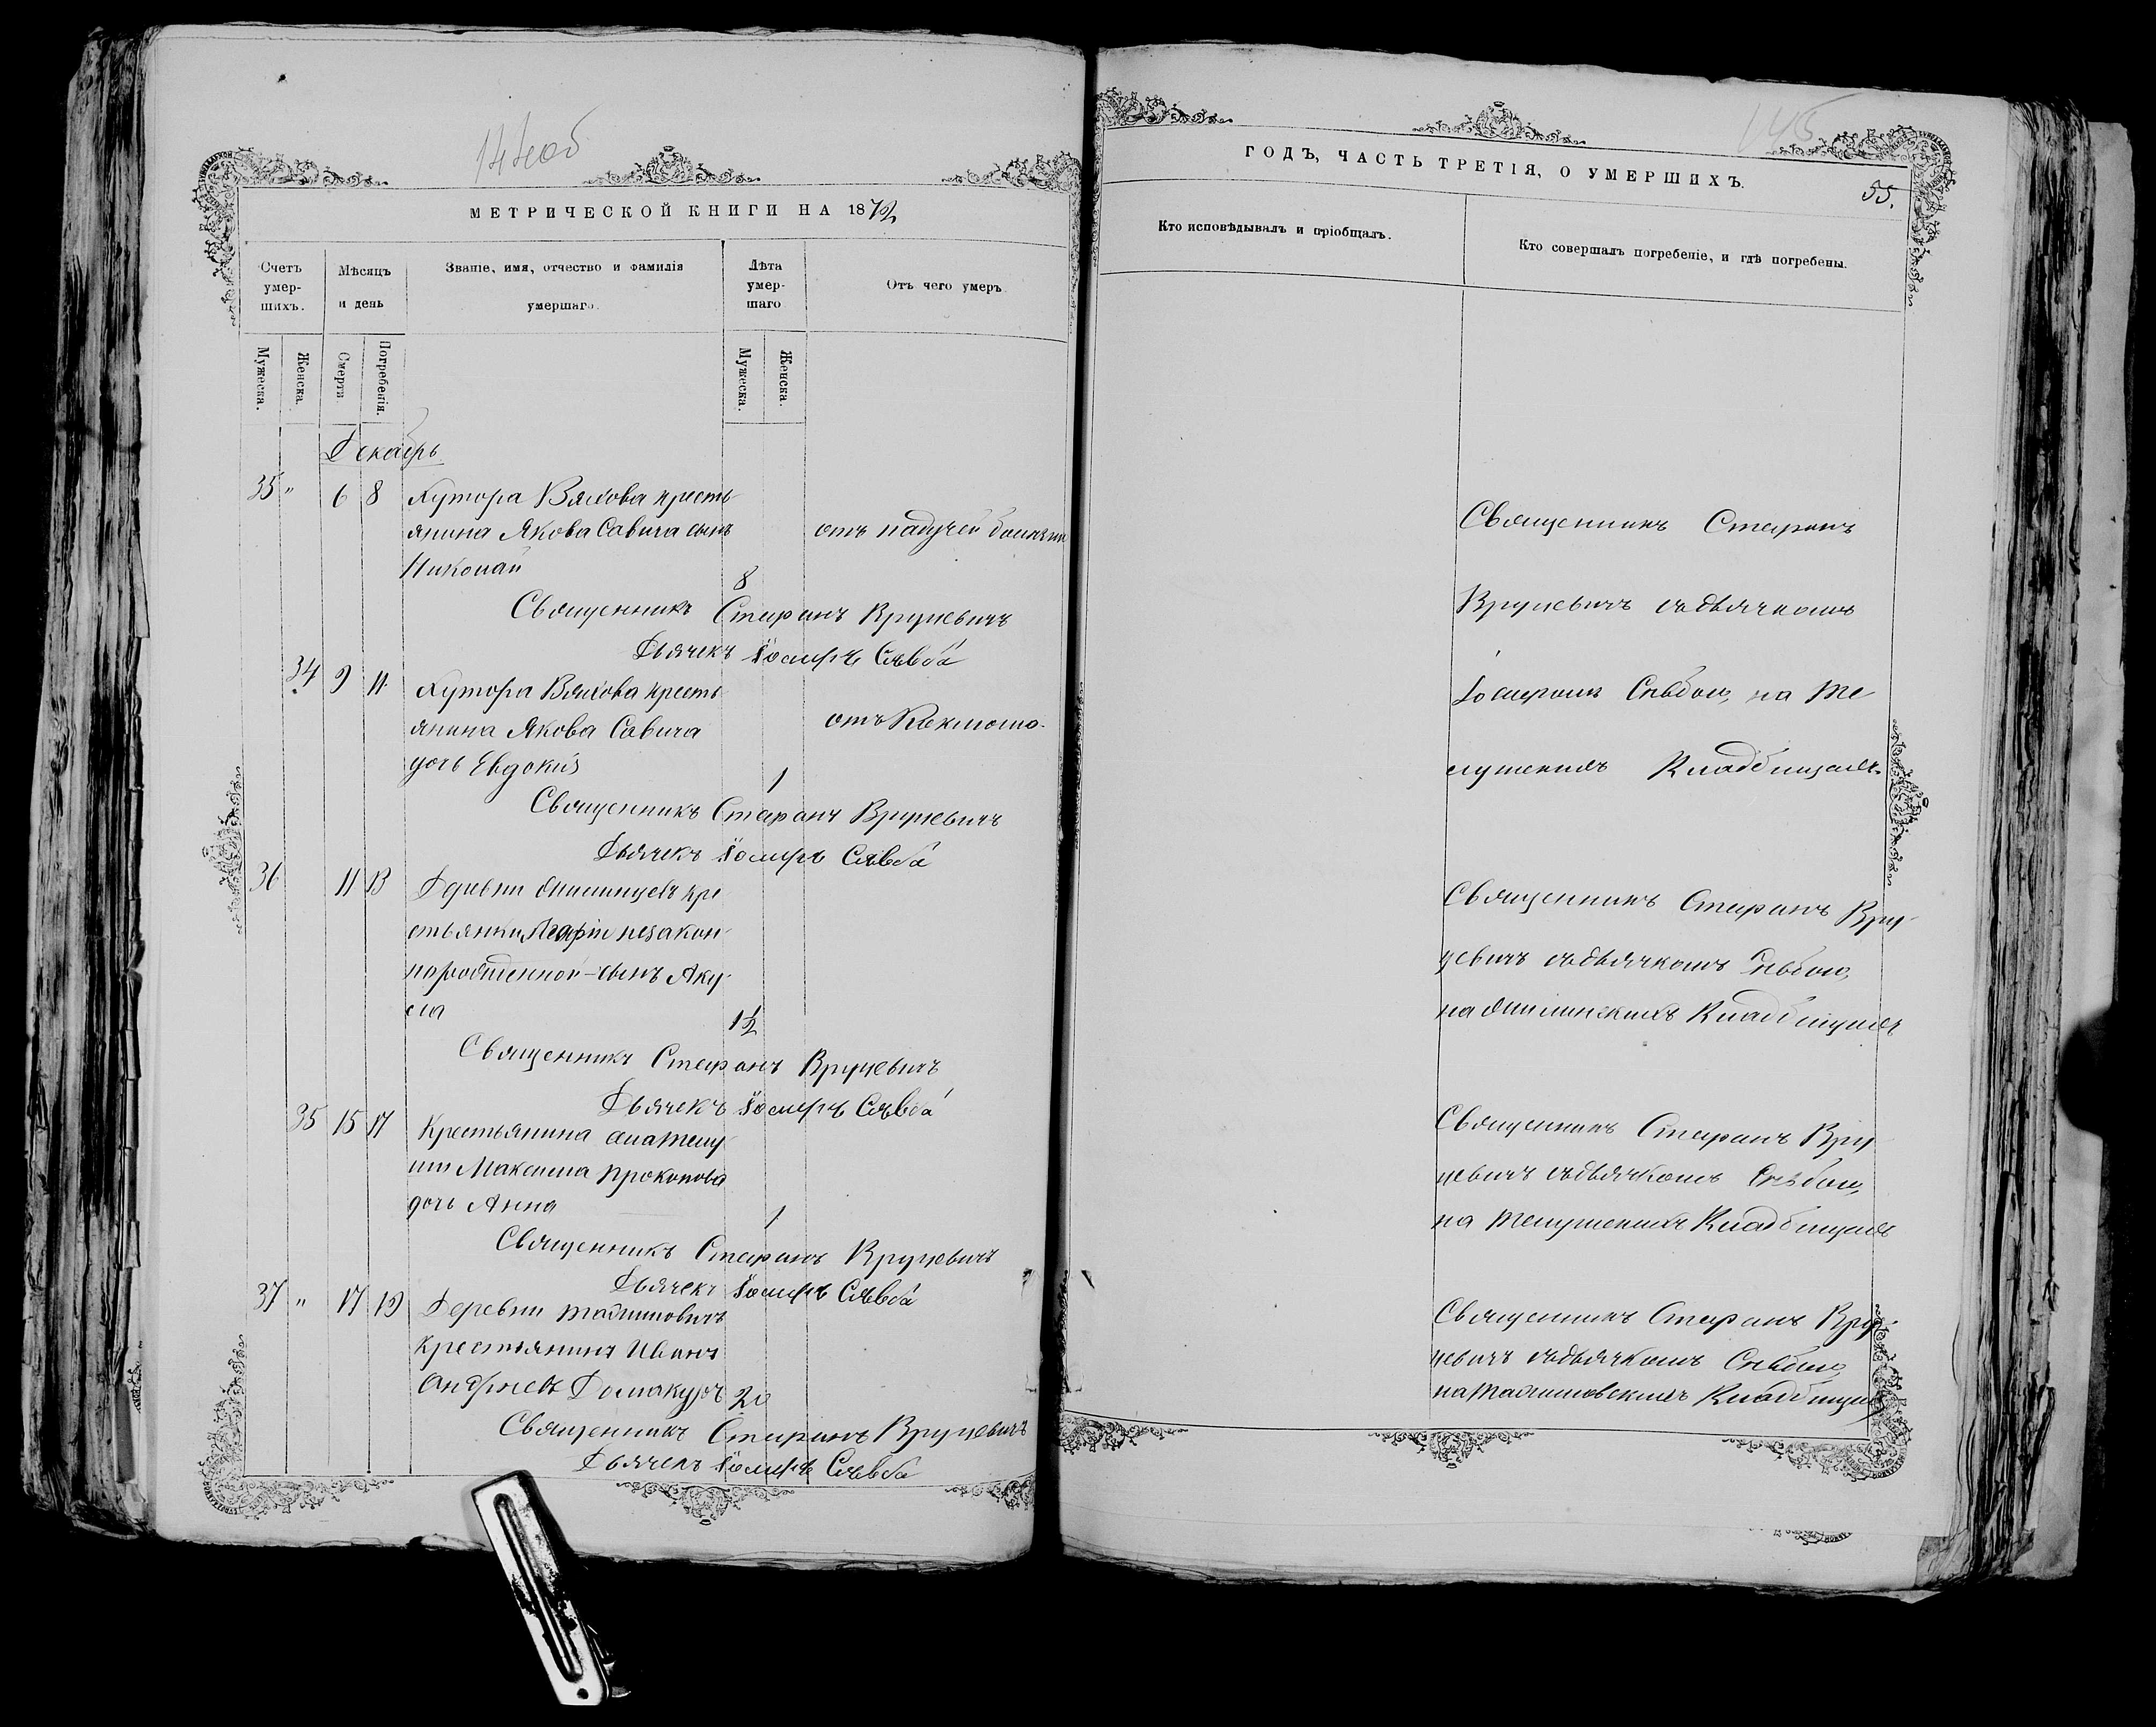 144 об
МЕТРИЧЕСКОЙ КНИГИ НА 1872
Счетъ умер-шихъ.
Мѣсяцъ и день
Званіе, имя, отчество и фамилія умершаго.
Лѣта умер-шаго
Отъ чего умеръ
Мужеска.
Женска.
Смерти.
Погребенія.
Мужеска.
Женска.
Декабрь
35 " 6 8 Хутора Вялова кресть
янина Якова Савича сынъ отъ падучей болѣзни
Николай 8
Священникъ Стефанъ Вруцевичъ
Дьячекъ Іосифъ Слѣвба
34 9 11 Хутора Вялова кресть
янина Якова Савича отъ
дочь Евдокія 1
Священникъ Стефанъ Вруцевичъ
Дьячекъ Іосифъ Слѣвба
36 11 13 кре
стьянки незакон
норожденной сынъ
1½
Священникъ Стефанъ Вруцевичъ
Дьячекъ Іосифъ Слѣвба
35 15 17 Крестьянина
Максима Прокопова
дочь Анна 1
Священникъ Стефанъ Вруцевичъ
Дьячекъ Іосифъ Слѣвба
37 " 17 19 Деревни
крестьянинъ Иванъ
Андреевъ 20
Священникъ Стефанъ Вруцевичъ
Дьячекъ Іосифъ Слѣвба
145
ГОДЪ, ЧАСТЬ ТРЕТІЯ, О УМЕРШИХЪ.
55.
Кто исповѣдывалъ и пріобщалъ.
Кто совершалъ погребеніе, и гдѣ погребены.
Священникъ Стефанъ
Вруцевичъ съ дьячкомъ
Іосифомъ на
Кладбищахъ
Священникъ Стефанъ Вру
цевичъ съ дьячкомъ
на Кладбищахъ
Священникъ Стефанъ Вру
цевичъ съ дьячкомъ
на Кладбищахъ
Священникъ Стефанъ Вру
цевичъ съ дьячкомъ
на Кладбищахъ